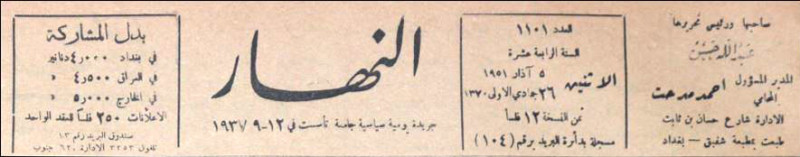 صاحبها ورئيس تحريرها
عبد الله حسن
المدير المسؤول
المحامي
احمد مدحت
الادارة شارع حسان بن ثابت
طبعت بمطبعة شفيق - بغداد
العدد ١١٠١
السنة الرابعة عشرة
٥ آذار ١٩٥١
الاثنين
٢٦ جمادي الاولى ١٣٧٠
ثمن النسخة ١٢ فلساً
مسجلة بدائرة البريد برقم (١٠٤)
النهار
جريدة يومية سياسية جامعة تأسست في ١٢-٩-١٩٣٧
بدل المشاركة
في بغداد ٤٫٠٠٠ دنانير
في العراق ٤٫٥٠٠ »
في الخارج ٥٫٠٠٠ »
الاعلانات ٢٥٠ فلساً للعقد الواحد
صندوق البريد رقم ١٣
تلفون ٣٢٥٣ الادارة ٦٢٠ جنوب